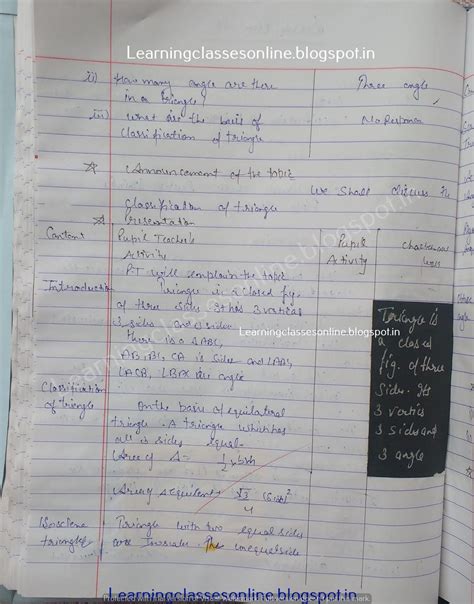 Learningclassesonline.blogspot.in
ii) How many angle are there Three angle
in a triangle?
iii) what are the basis of No Response
classification of triangle
Announcement of the topic
We shall discuss the
classification of triangle
Presentation
Content Pupil Teacher's Pupil
Activity Activity
PT will explain the topic
Introduction Triangle is a closed fig.
of three sides. It has 3 vertices
3 sides and
there is a ΔABC,
AB, BC, CA is sides and
are angle
Learningclassesonline.blogspot.in
Triangle is
a closed
fig. of three
side. Its
3 vertics
3 sides and
3 angle
Classification On the basis of equilateral
of triangle triangle - A triangle which has
all is sides equal-
Area of Δ = 1/2 x b x h
Area of equilent √3/4 (side)²
Isosclene Triangle with two equal sides
triangle are The unequal side
Learningclassesonline.blogspot.in